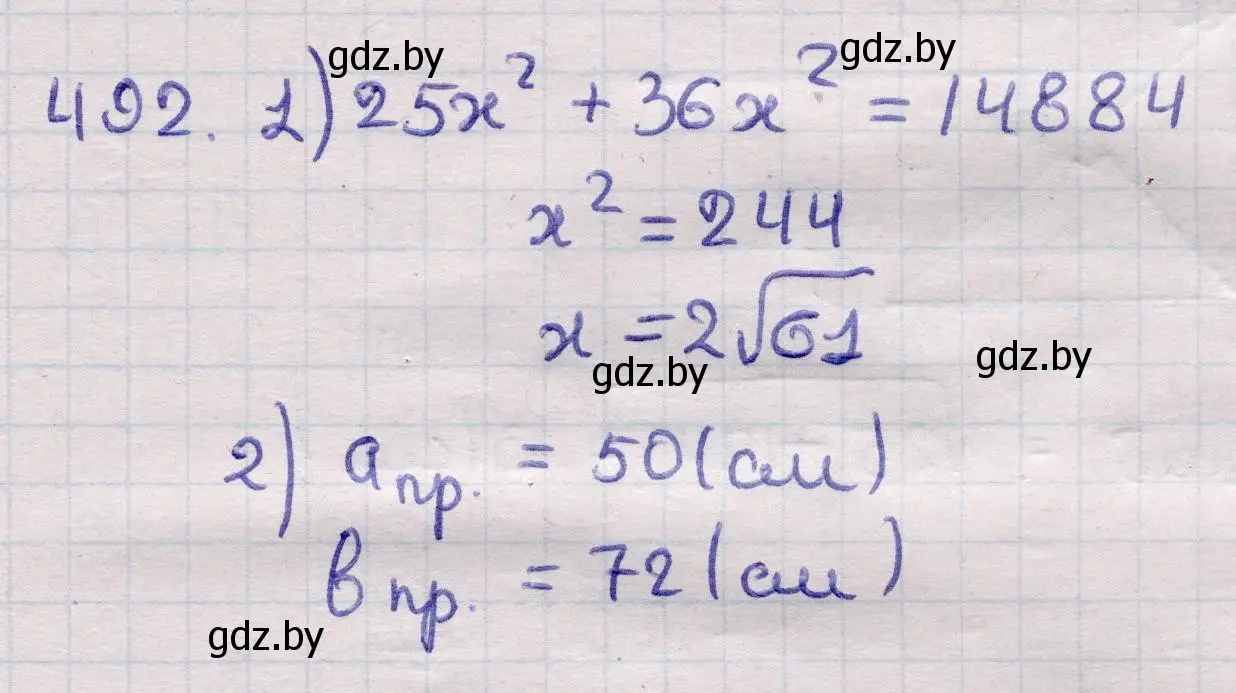 gdz.by gdz.by
492. 1) 25x² + 36x² = 14884
x² = 244
x = 2√61
gdz.by gdz.by
2) aпр. = 50 (см)
впр. = 72 (см)
gdz.by